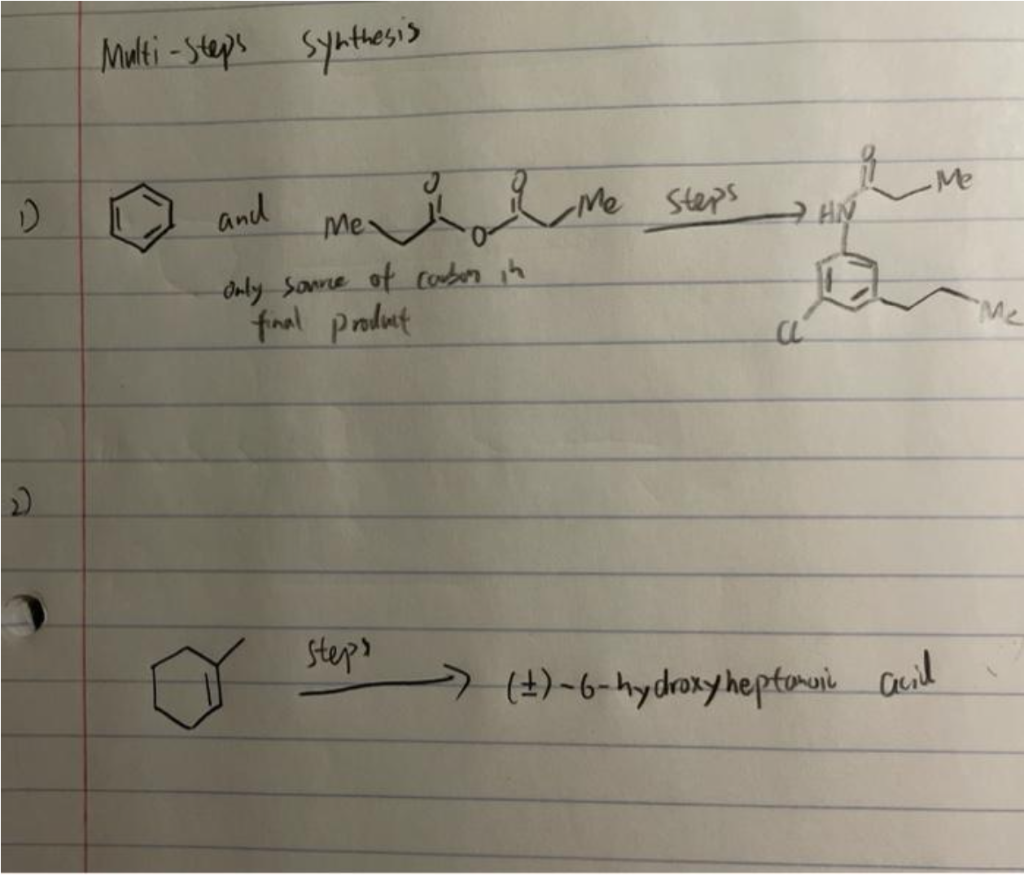 Multi-Steps Synthesis
1) and Me O O O Me Steps O Me HN Cl Me
only source of carbon in
final product
2)
steps (±)-6-hydroxyheptanoic acid